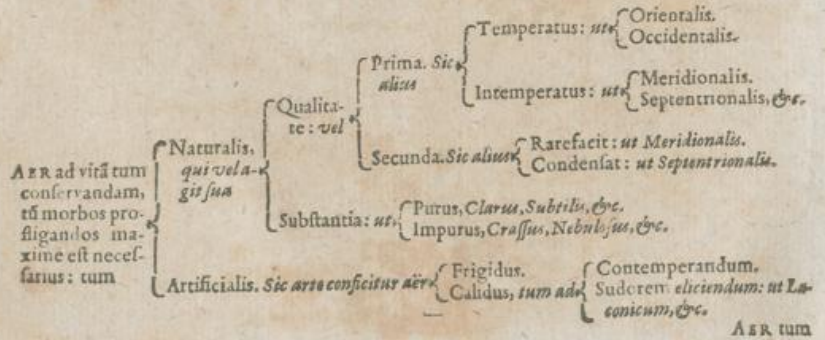 AER ad vitã tum
conſervandam,
tũ morbos pro-
fligandos ma-
xime eſt neceſ-
ſarius: tum
Naturalis,
qui vel a-
git ſua
Qualita-
te: vel
Prima. Sic
alius
Temperatus: ut
Orientalis.
Occidentalis.
Intemperatus: ut
Meridionalis.
Septentrionalis, &c.
Secunda. Sic alius
Rarefacit: ut Meridionalis.
Condenſat: ut Septentrionalis.
Subſtantia: ut,
Purus, Clarus, Subtilis, &c.
Impurus, Craſſus, Nebuloſus, &c.
Artificialis. Sic arte conficitur aër
Frigidus.
Calidus, tum ad
Contemperandum.
Sudorem eliciendum: ut La-
conicum, &c.
AER tum